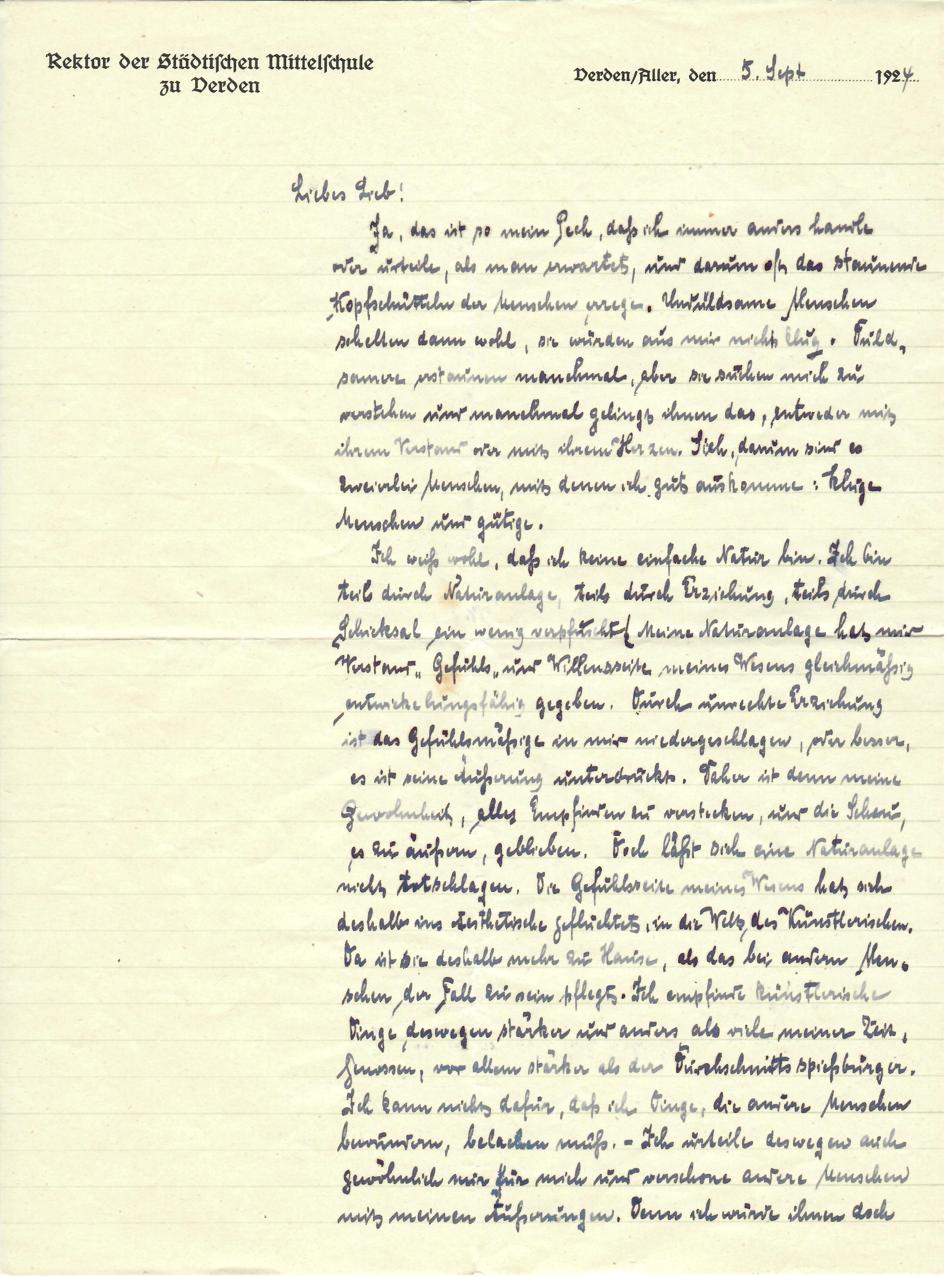 Rektor der Städtischen Mittelschule
zu Verden
Verden/Aller, den 5. Sept 1924
Liebes Lieb!
Ja, das ist so mein Pech, daß ich immer anders handle
oder urteile, als man erwartet, und darum oft das staunende
Kopfschütteln der Menschen errege. Unduldsame Menschen
schelten dann wohl, sie würden aus mir nicht klug. Duld-
samere erstaunen manchmal, aber sie suchen mich zu
verstehen und manchmal gelingt ihnen das, entweder mit
ihrem Verstand oder mit ihrem Herzen. Sieh, darum sind es
zweierlei Menschen, mit denen ich gut auskomme: kluge
Menschen und gütige.
Ich weiß wohl, daß ich keine einfache Natur bin. Ich bin
teils durch Naturanlage, teils durch Erziehung, teils durch
Schicksal ein wenig verpfuscht! Meine Naturanlage hat mir
Verstand-, Gefühls- und Willensseite meines Wesens gleichmäßig
entwickelungsfähig gegeben. Durch unrechte Erziehung
ist das Gefühlsmäßige in mir niedergeschlagen, oder besser,
es ist seine Äußerung unterdrückt. Daher ist denn meine
Gewohnheit, alles Empfinden zu verstecken, und die Scheu,
es zu äußern, geblieben. Doch läßt sich eine Naturanlage
nicht totschlagen. Die Gefühlsseite meines Wesens hat sich
deshalb ins Aesthetische geflüchtet, in die Welt des Künstlerischen.
Da ist sie deshalb mehr zu Hause, als das bei andern Men-
schen der Fall zu sein pflegt. Ich empfinde künstlerische
Dinge deswegen stärker und anders als viele meiner Zeit-
genossen, vor allem stärker als der Durchschnittsspießbürger.
Ich kann nichts dafür, daß ich Dinge, die andere Menschen
bewundern, belachen muß. - Ich urteile deswegen auch
gewöhnlich nur für mich und verschone andere Menschen
mit meinen Äußerungen. Denn ich würde ihnen doch